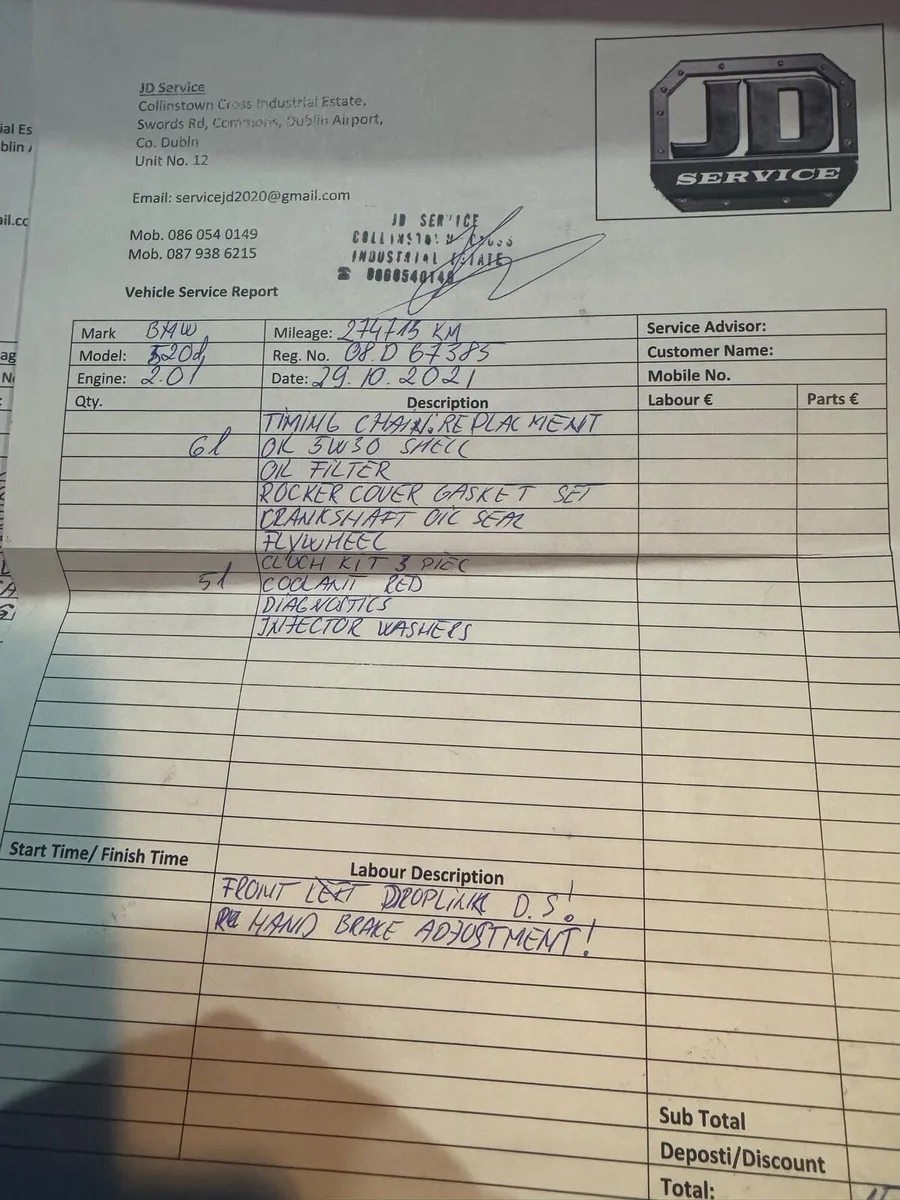 JD Service
Collinstown Cross Industrial Estate,
Swords Rd, Commons, Dublin Airport,
Co. Dubln
Unit No. 12
Email: servicejd2020@gmail.com
Mob. 086 054 0149
Mob. 087 938 6215
JD
SERVICE
JD SERVICE
COLLINSTOWN CROSS
INDUSTRIAL ESTATE
☎ 0860540149
Vehicle Service Report
Mark BMW Mileage: 274715 KM Service Advisor:
Model: 520d Reg. No. 08.D 67385 Customer Name:
Engine: 2.0l Date: 29.10.2021 Mobile No.
Qty. Description Labour € Parts €
TIMING CHAIN REPLACMENT
6l OIL 5W30 SHELL
OIL FILTER
ROCKER COVER GASKET SET
CRANKSHAFT OIL SEAL
FLYWHEEL
CLUCH KIT 3 PIEC
5l COOLANT RED
DIAGNOSTICS
INJECTOR WASHERS
Start Time/ Finish Time Labour Description
FRONT LEFT DROPLINK D.S!
HAND BRAKE ADJUSTMENT!
Sub Total
Deposti/Discount
Total: